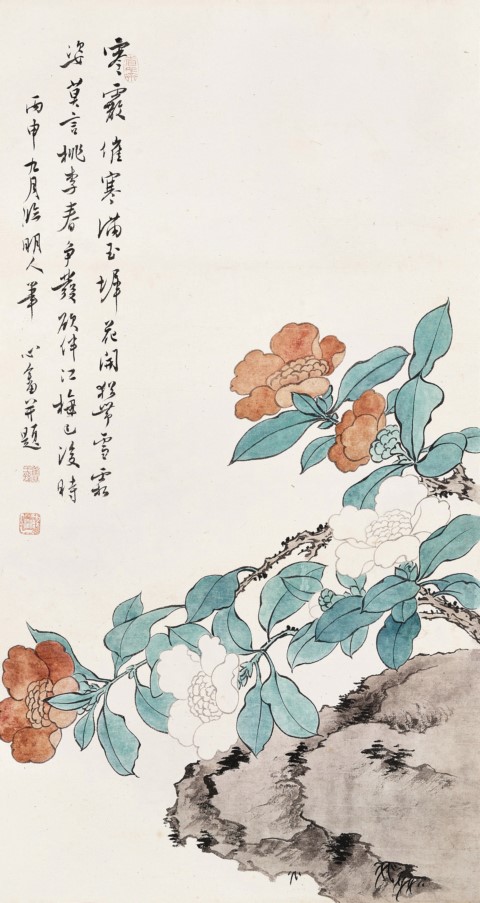 寒霰催寒滿玉墀花開猶帶雪霜
姿莫言桃李春爭發欲伴江梅已後時
丙申九月臨明人筆 心畬并題